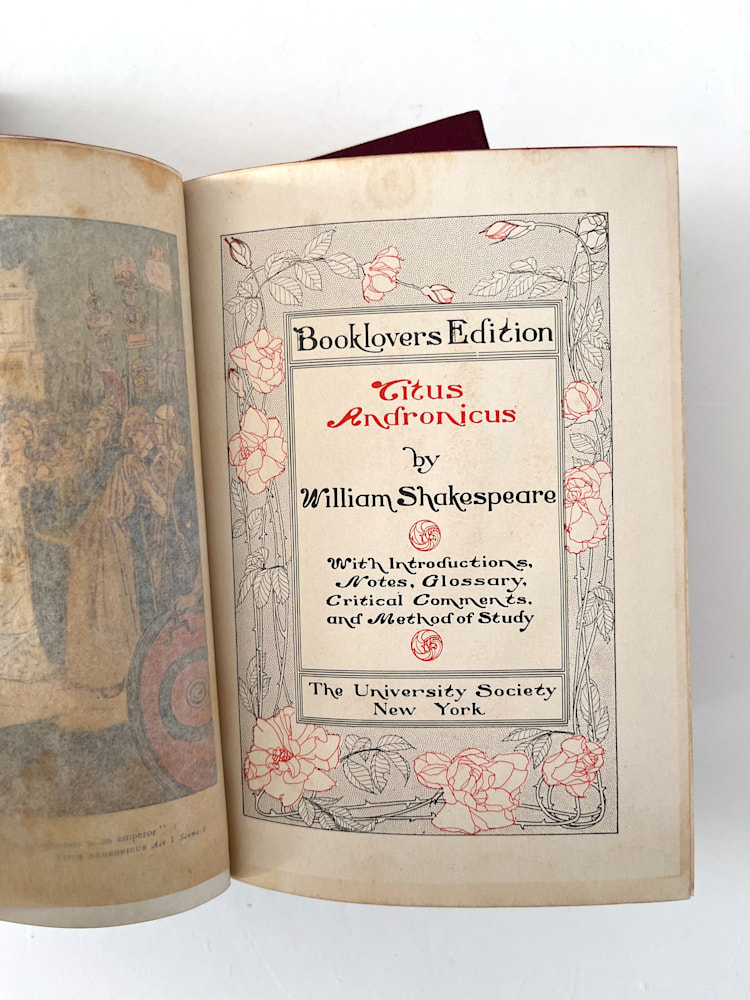 an emperor"
TITUS ANDRONICUS Act I Scene I
Booklovers Edition
Titus
Andronicus
by
William Shakespeare
With Introductions,
Notes, Glossary,
Critical Comments,
and Method of Study
The University Society
New York